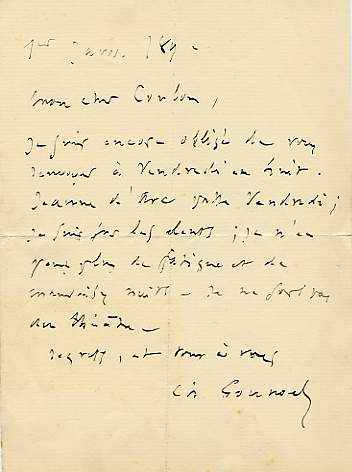 1er Janv. 189
mon cher Corbon,
Je suis encore obligé de vous
renvoyer à Vendredi en huit.
Jeanne d'Arc passe Vendredi ;
je suis sur les dents ; je n'en
peux plus de fatigue et de
mauvaises nuits — Je ne sors pas
du théâtre —
regrets, et tout à vous
Ch Gounod